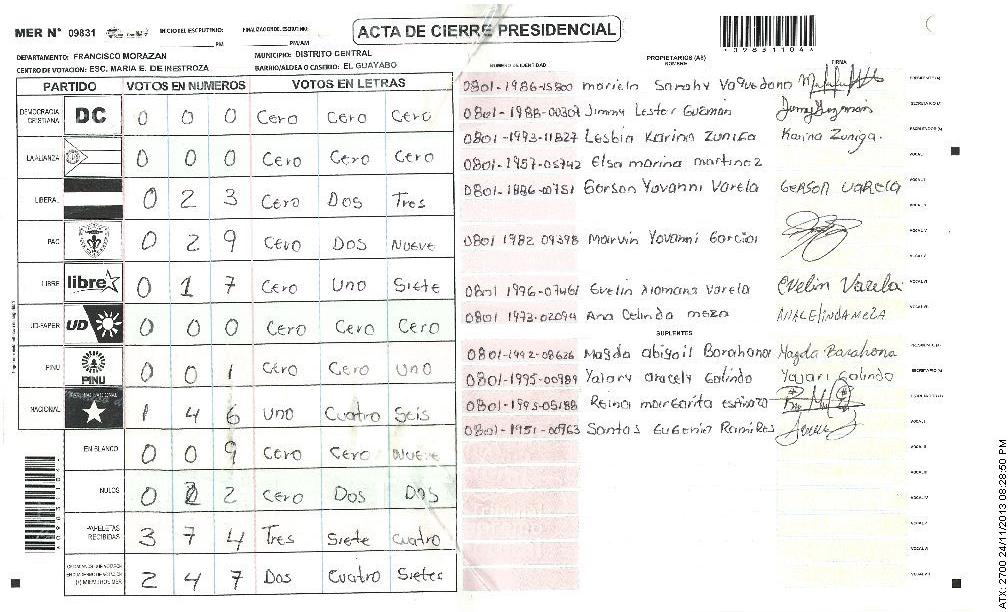 MER N° 09831 INICIO DEL ESCRUTINIO: PM FINALIZACION DEL ESCRUTINIO: PM/AM
ACTA DE CIERRE PRESIDENCIAL
DEPARTAMENTO: FRANCISCO MORAZAN MUNICIPIO: DISTRITO CENTRAL
CENTRO DE VOTACION: ESC. MARIA E. DE INESTROZA BARRIO/ALDEA O CASERIO: EL GUAYABO
PARTIDO VOTOS EN NUMEROS VOTOS EN LETRAS
DEMOCRACIA CRISTIANA DC 0 0 0 Cero Cero Cero
LA ALIANZA 0 0 0 Cero Cero Cero
LIBERAL 0 2 3 Cero Dos Tres
PAC 0 2 9 Cero Dos Nueve
LIBRE libre 0 1 7 Cero Uno Siete
UD-FAPER UD 0 0 0 Cero Cero Cero
PINU PINU 0 0 1 Cero Cero Uno
NACIONAL 1 4 6 Uno Cuatro Seis
EN BLANCO 0 0 9 Cero Cero Nueve
NULOS 0 2 2 Cero Dos Dos
PAPELETAS RECIBIDAS 3 7 4 Tres Siete Cuatro
2 4 7 Dos Cuatro Sietes
NUMERO DE IDENTIDAD PROPIETARIOS (AS) NOMBRE FIRMA
0801-1986-15800 mariela Sarahy Vaquedano PRESIDENTE (A)
0801-1988-00309 Jimmy Lester Guzman Jimmy Guzman SECRETARIO (A)
0801-1993-11827 Lesbia Karina Zuniga Karina Zuniga. ESCRUTADOR (A)
0801-1957-05742 Elsa marina martinez VOCAL I
0801-1986-00751 Gerson Yovanni Varela GERSON VARELA
0801 1982 09398 Marvin Yovanni Garcia
0801 1996-07461 Evelin Xiomara Varela Evelin Varela
0801 1973-02094 Ana Celinda meza ANA CELINDA MEZA
SUPLENTES
0801-1992-08626 Magda abigail Barahona Magda Barahona
0801-1995-00989 Yajary aracely Galindo Yajari Galindo
0801-1995-05188 Reina margarita espinoza
0801-1951-00963 Santos Eugenio Ramires
ATX: 2700 24/11/2013 08:28:50 PM